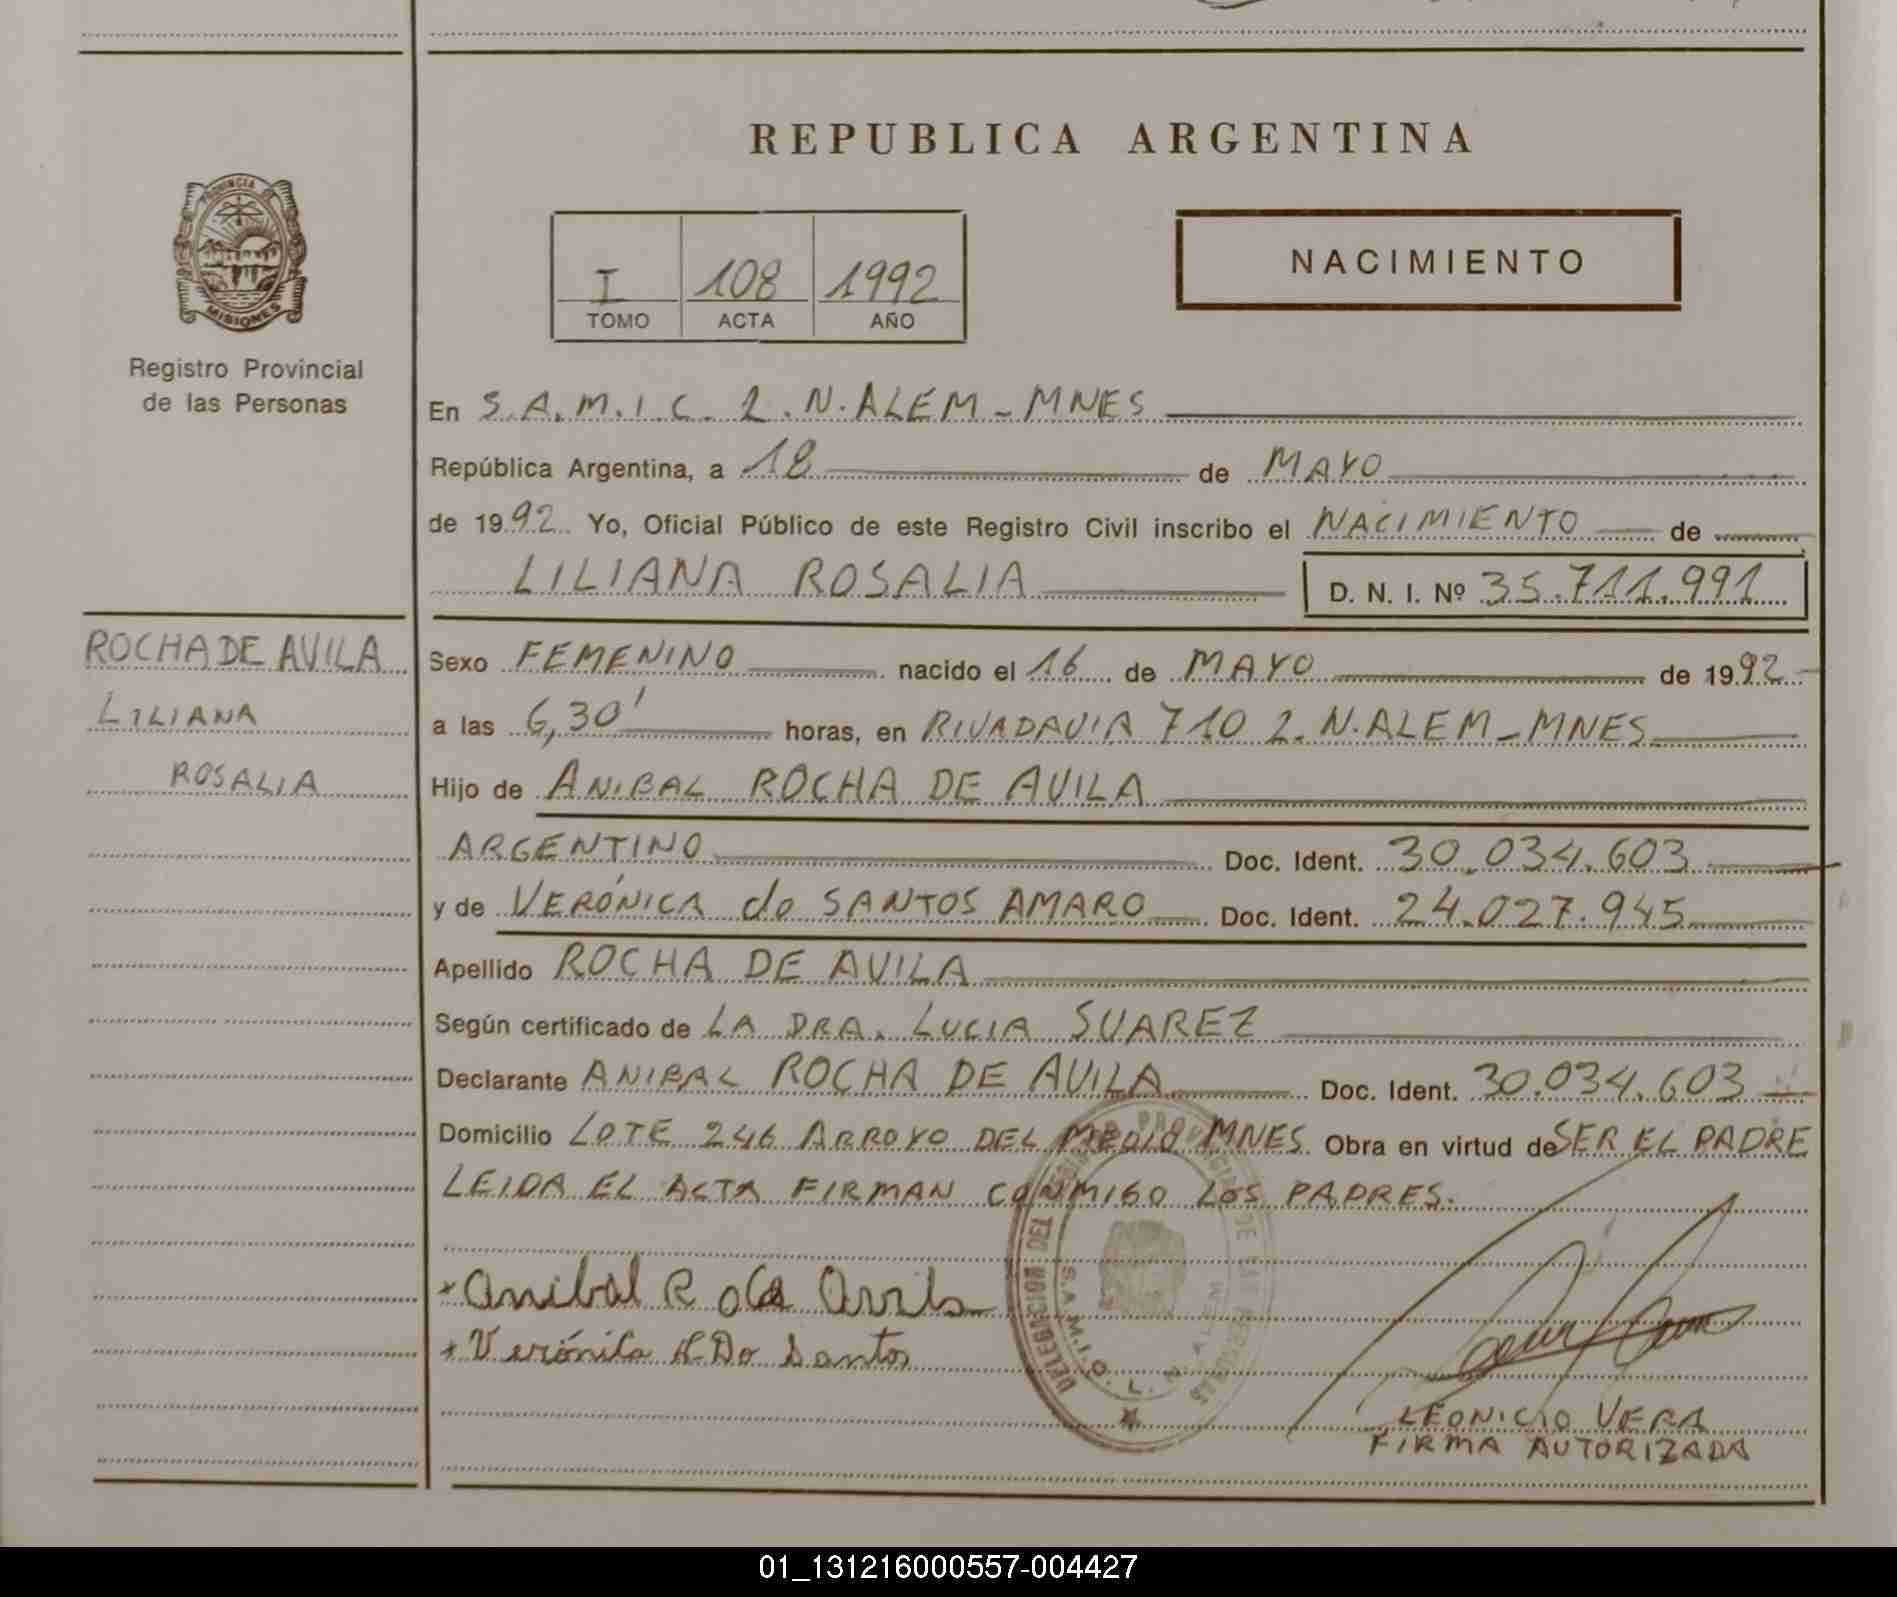 REPUBLICA ARGENTINA
PROVINCIA DE
MISIONES
Registro Provincial
de las Personas
I 108 1992
TOMO ACTA AÑO
NACIMIENTO
En S.A.M.I.C. L.N.ALEM - MNES
República Argentina, a 18 de MAYO
de 1992. Yo, Oficial Público de este Registro Civil inscribo el NACIMIENTO de
LILIANA ROSALIA D. N. I. Nº 35.711.991
ROCHA DE AVILA
LILIANA
ROSALIA
Sexo FEMENINO nacido el 16 de MAYO de 1992
a las 6,30' horas, en RIVADAVIA 710 L.N.ALEM - MNES
Hijo de ANIBAL ROCHA DE AVILA
ARGENTINO Doc. Ident. 30.034.603
y de VERÓNICA do SANTOS AMARO Doc. Ident. 24.027.945
Apellido ROCHA DE AVILA
Según certificado de LA DRA. LUCIA SUAREZ
Declarante ANIBAL ROCHA DE AVILA Doc. Ident. 30.034.603
Domicilio LOTE 246 ARROYO DEL MEDIO MNES. Obra en virtud de SER EL PADRE
LEIDA EL ACTA FIRMAN CONMIGO LOS PADRES.
Anibal
Verónica Do Santos
DELEGACION DEL REGISTRO PROVINCIAL DE LAS PERSONAS
S.A.M.I.C. L. N. ALEM
LEONICIO VERA
FIRMA AUTORIZADA
01_131216000557-004427